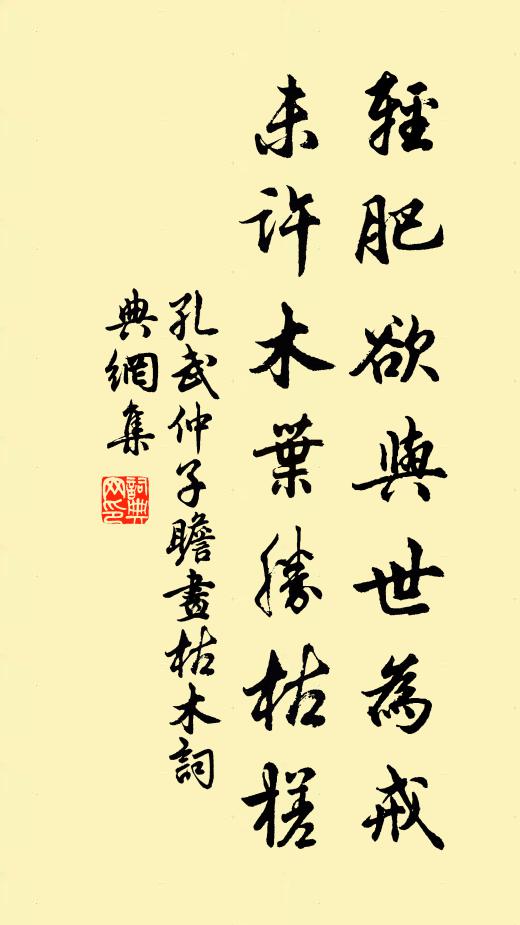 輕肥欲與世為戒
未許木葉勝枯槎
孔武仲子瞻畫枯木詞
典網集
詞典網印